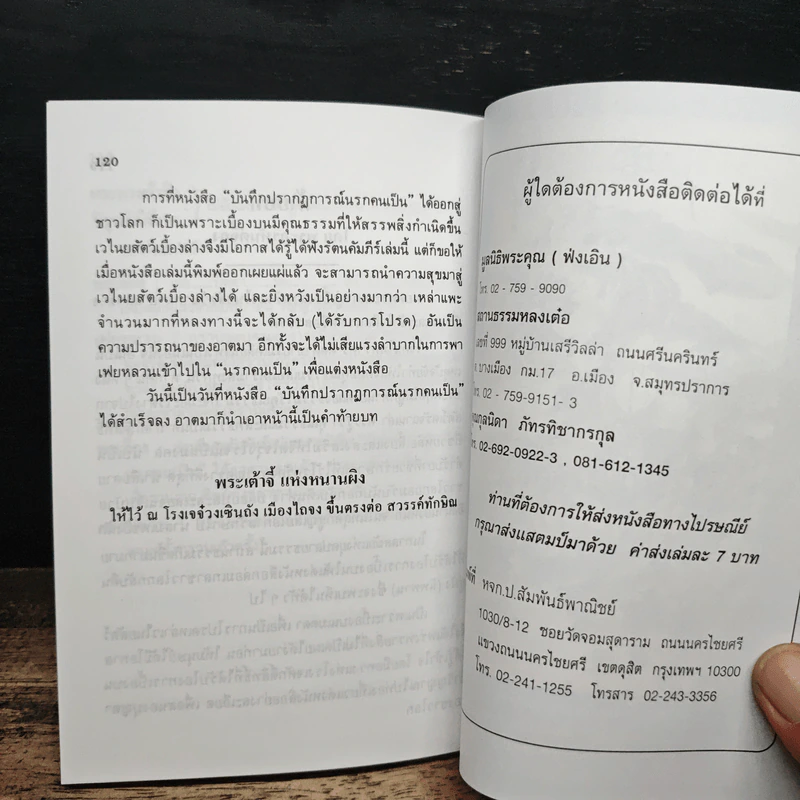 120
การที่หนังสือ “บันทึกปรากฏการณ์นรกคนเป็น” ได้ออกสู่
ชาวโลก ก็เป็นเพราะเบื้องบนมีคุณธรรมที่ให้สรรพสิ่งกำเนิดขึ้น
เวไนยสัตว์เบื้องล่างจึงมีโอกาสได้รู้ได้ฟังรัตนคัมภีร์เล่มนี้ แต่ก็ขอให้
เมื่อหนังสือเล่มนี้พิมพ์ออกเผยแผ่แล้ว จะสามารถนำความสุขมาสู่
เวไนยสัตว์เบื้องล่างได้ และยิ่งหวังเป็นอย่างมากว่า เหล่าแพะ
จำนวนมากที่หลงทางนี้จะได้กลับ (ได้รับการโปรด) อันเป็น
ความปรารถนาของอาตมา อีกทั้งจะได้ไม่เสียแรงลำบากในการพา
เฟยหลวนเข้าไปใน “นรกคนเป็น” เพื่อแต่งหนังสือ
วันนี้เป็นวันที่หนังสือ “บันทึกปรากฏการณ์นรกคนเป็น”
ได้สำเร็จลง อาตมาก็นำเอาหน้านี้เป็นคำท้ายบท
พระเต้าจี้ แห่งหนานผิง
ให้ไว้ ณ โรงเจจ๋วงเซินถัง เมืองไถจง ขึ้นตรงต่อ สวรรค์ทักษิณ
ผู้ใดต้องการหนังสือติดต่อได้ที่
มูลนิธิพระคุณ ( ฟ่งเอิน )
โทร. 02 - 759 - 9090
สถานธรรมหลงเต๋อ
เลขที่ 999 หมู่บ้านเสรีวิลล่า ถนนศรีนครินทร์
บางเมือง กม.17 อ.เมือง จ.สมุทรปราการ
02 - 759-9151- 3
คุณกุลนิดา ภัทรทิชากรกุล
โทร. 02-692-0922-3 , 081-612-1345
ท่านที่ต้องการให้ส่งหนังสือทางไปรษณีย์
กรุณาส่งแสตมป์มาด้วย ค่าส่งเล่มละ 7 บาท
พิมพ์ที่ หจก.ป.สัมพันธ์พาณิชย์
1030/8-12 ซอยวัดจอมสุดาราม ถนนนครไชยศรี
แขวงถนนนครไชยศรี เขตดุสิต กรุงเทพฯ 10300
โทร. 02-241-1255 โทรสาร 02-243-3356